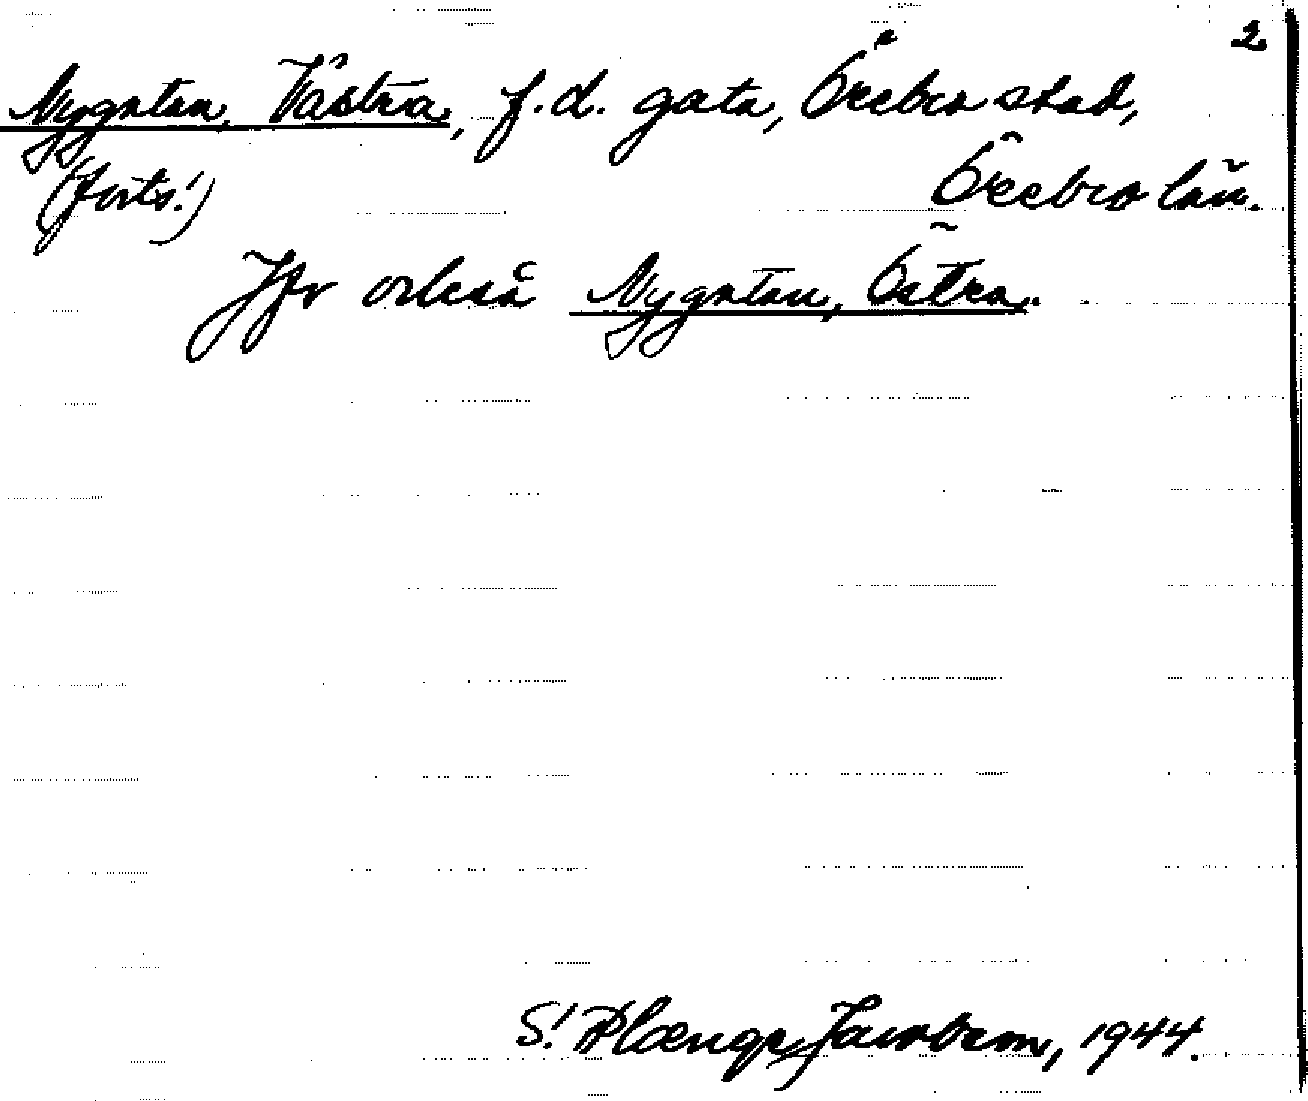 2
Nygatan, Västra, f.d. gata, Örebro stad,
(forts.) Örebro län.
Jfr också Nygatan, Östra.
S. Plænge Jacobson, 1944.